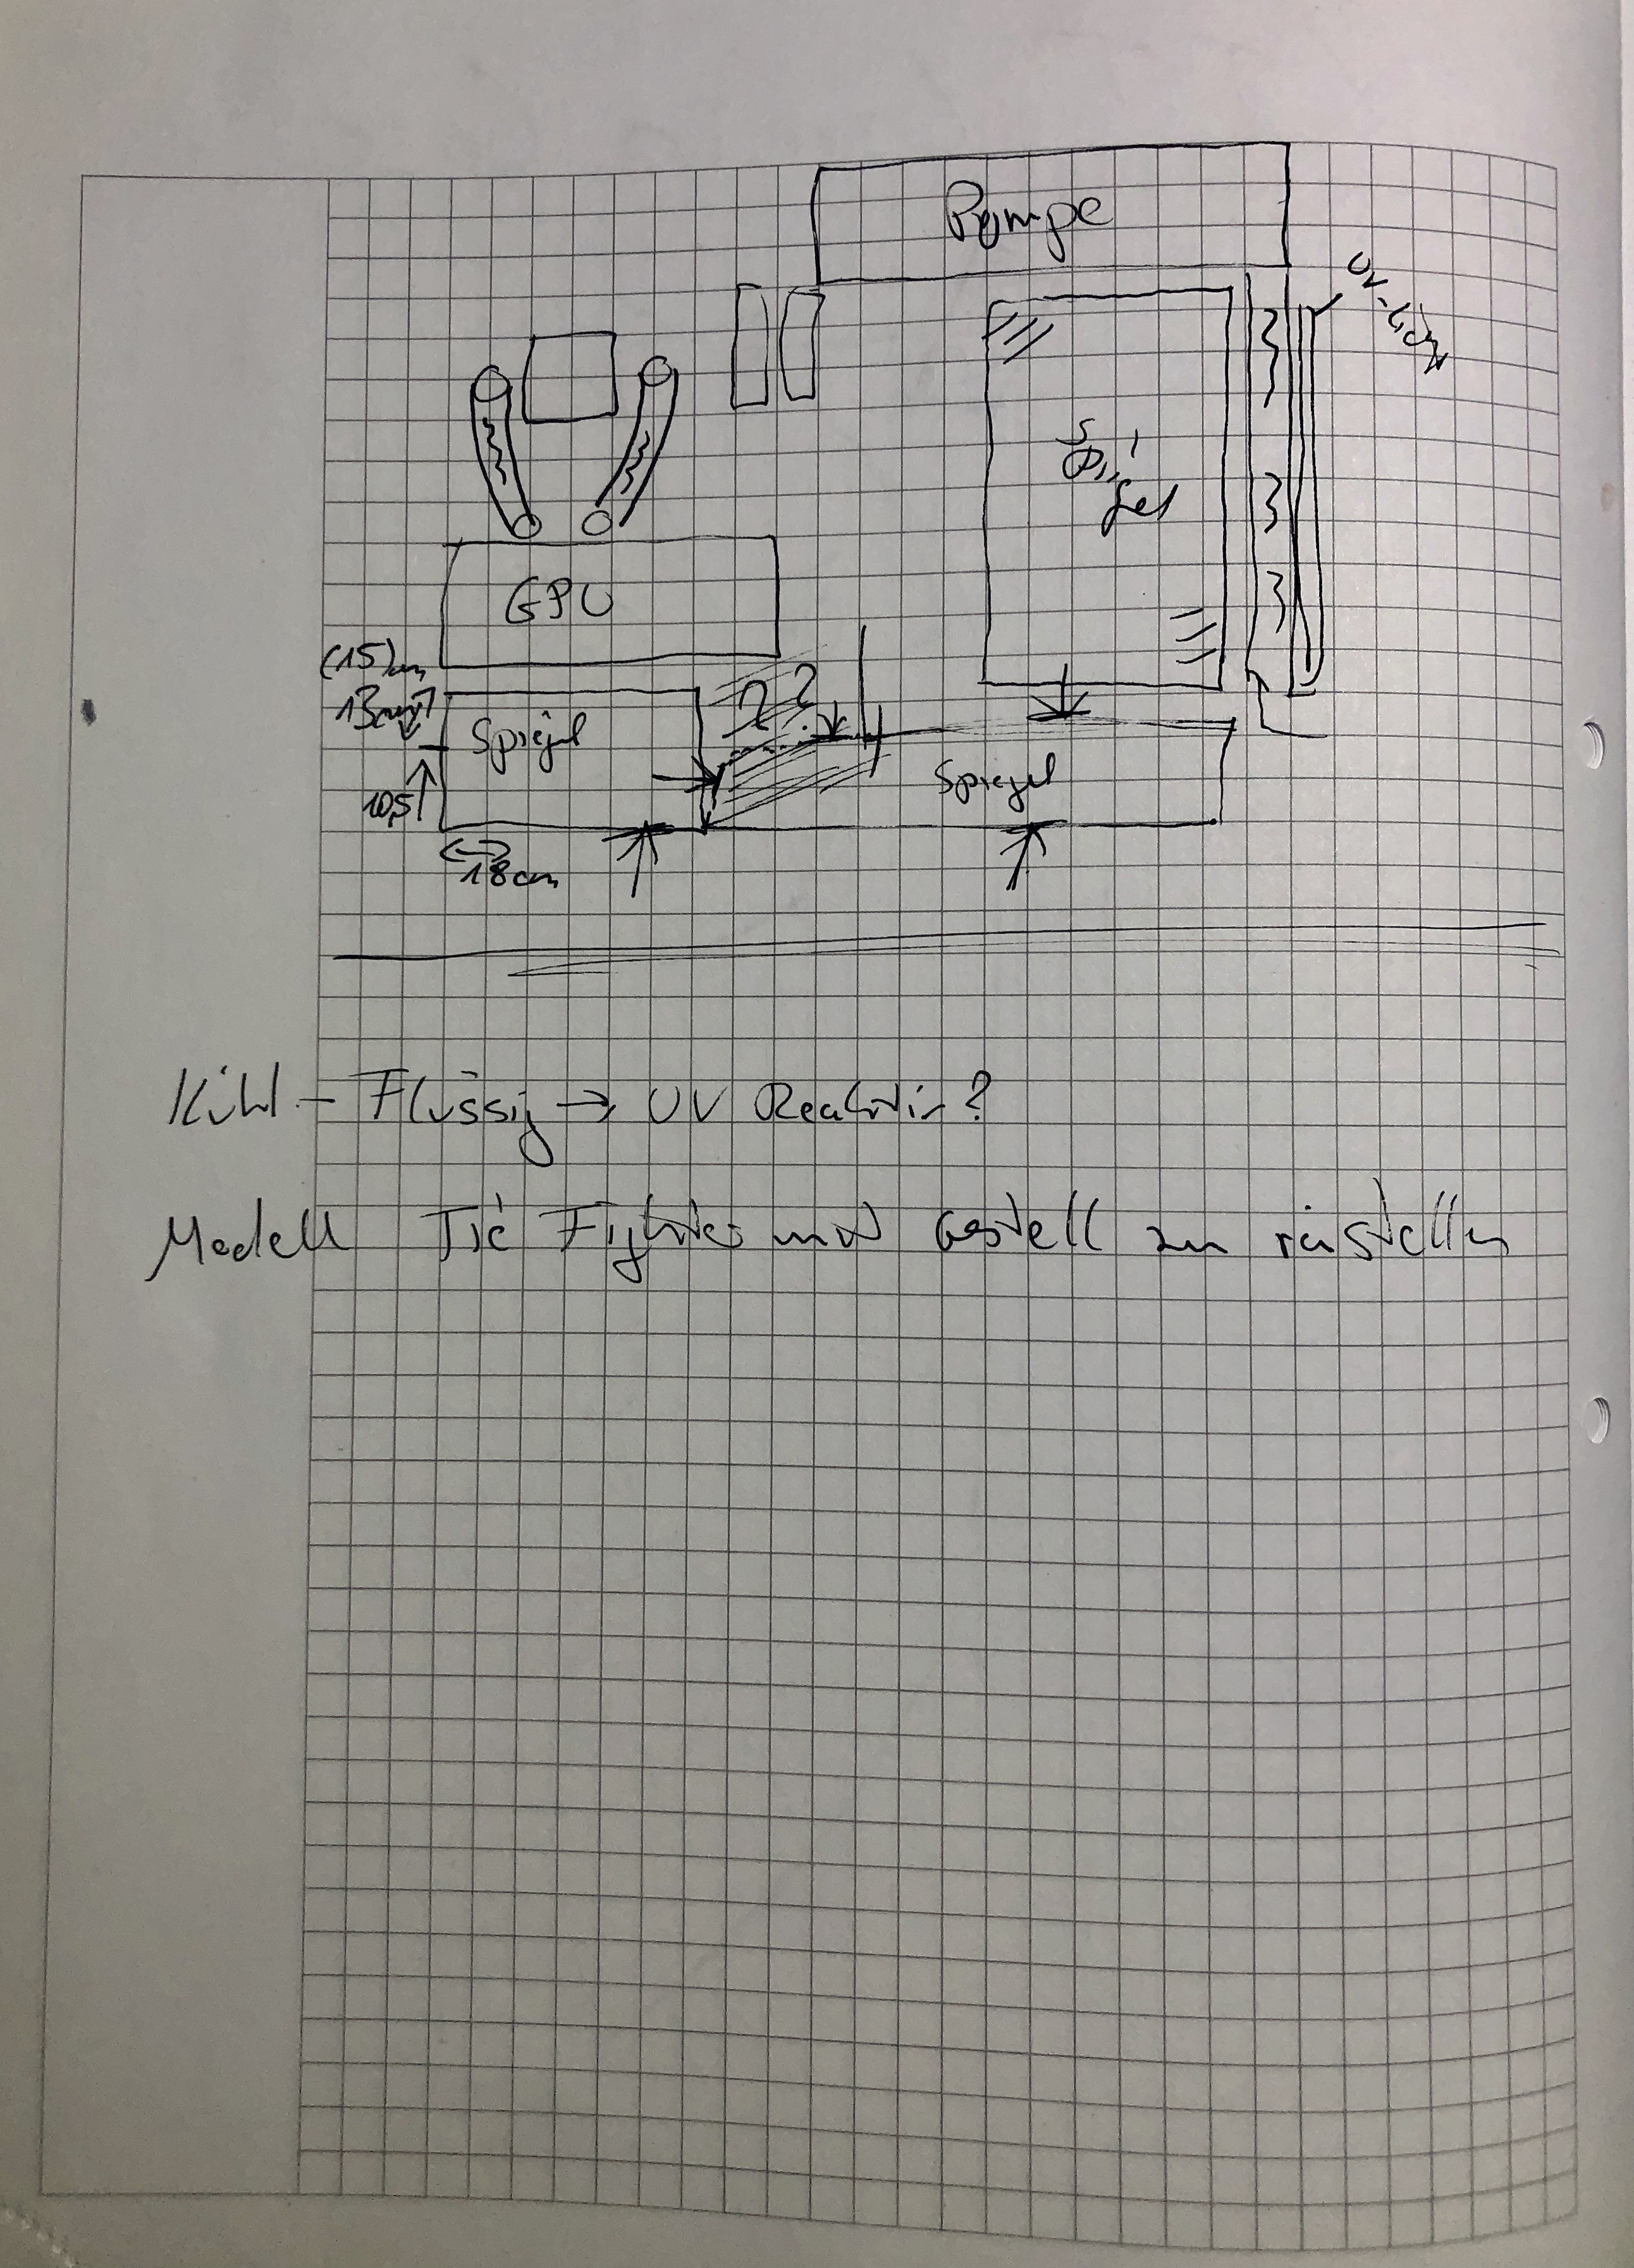 Pumpe
UV-Licht
Spiegel
GPU
(15)cm
13cm
??
Spiegel
Spiegel
10,5
18cm
Kühl-Flüssig → UV Reaktiv?
Modell Tie Fighter mit Gestell zum reinstellen